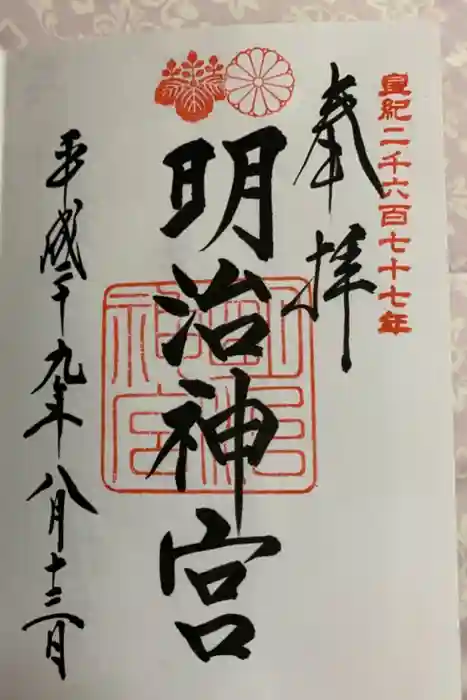 皇紀二千六百七十七年
奉拝
明治神宮
明治
神宮
平成二十九年八月十三日